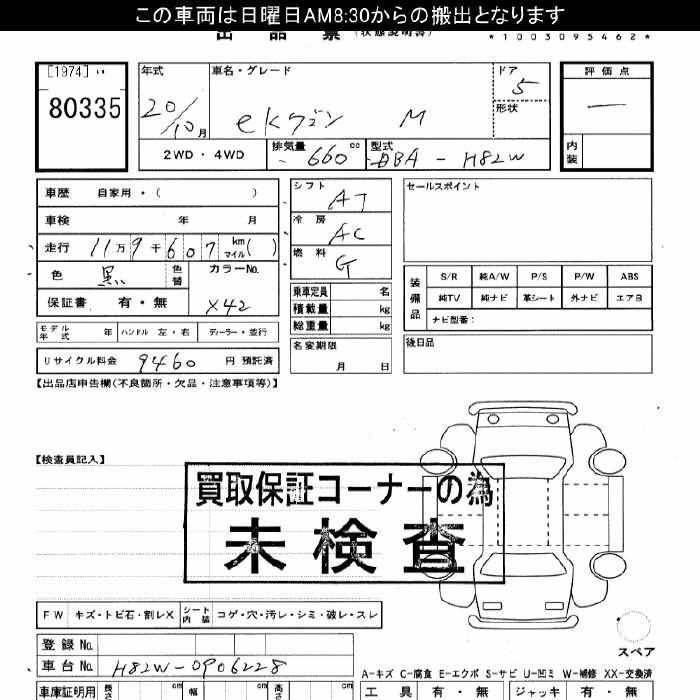 この車両は日曜日AM8:30からの搬出となります
出品票(状態説明書)
*1003095462*
[1974]
80335
年式 車名・グレード ドア 評価点
20/10月 eKワゴン M 5 —
形状
2WD・4WD 排気量 660cc 型式 DBA-H82W 内装
車歴 自家用・( )
シフト AT
セールスポイント
車検 年 月
冷房 AC
走行 11万9千607 km マイル( )
燃料 G
色 黒 色替 カラーNo. X42
保証書 有・無
乗車定員 名
積載量 kg
総重量 kg
装備品 S/R 純A/W P/S P/W ABS
純TV 純ナビ 革シート 外ナビ エアB
ナビ型番:
モデル年式 年 ハンドル 左・右 ディーラー・並行
名変期限 月 日
後日品
リサイクル料金 9460 円 預託済
【出品店申告欄(不良箇所・欠品・注意事項等)】
【検査員記入】
買取保証コーナーの為
未検査
FW キズ・トビ石・割レX シート内装 コゲ・穴・汚レ・シミ・破レ・スレ
スペア
登録No.
車台No. H82W-0906228
A-キズ C-腐食 E-エクボ S-サビ U-凹ミ W-補修 XX-交換済
車庫証明用 長さ cm 幅 cm 高さ cm 工具 有・無 ジャッキ 有・無